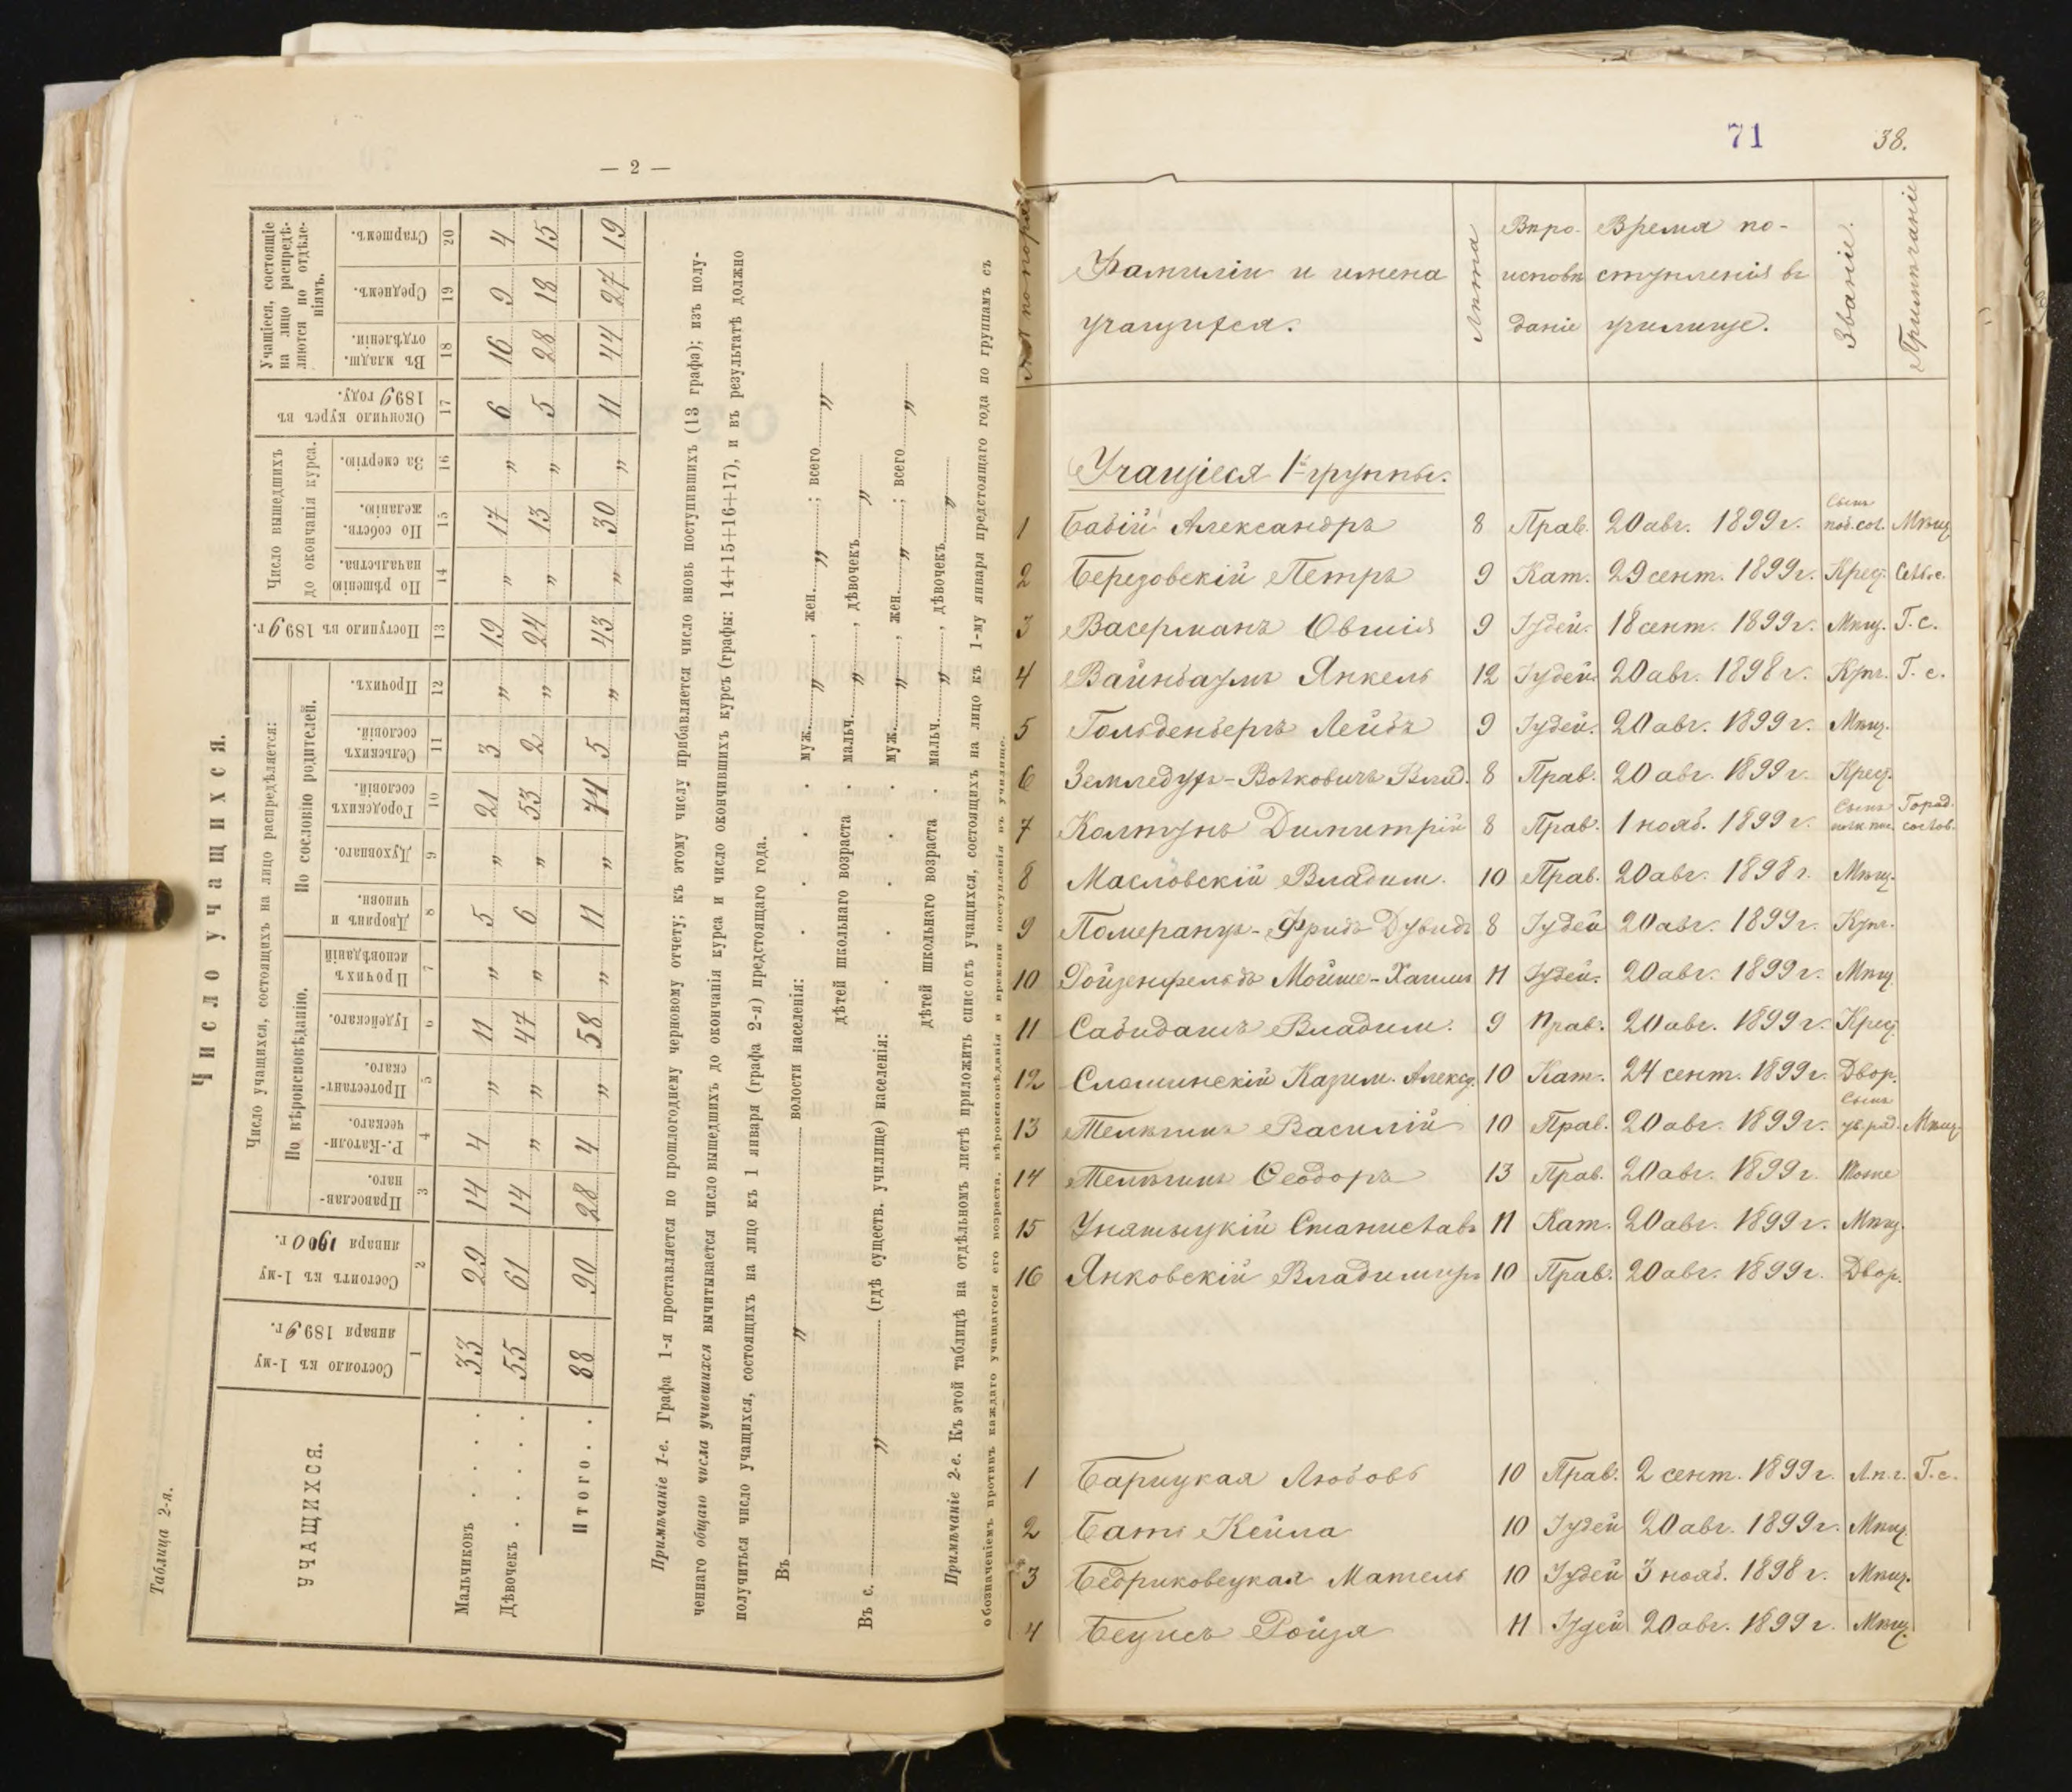 — 2 —
Таблица 2-я.
Число учащихся.
УЧАЩИХСЯ.
Состояло къ 1-му января 1899 г.
Состоитъ къ 1-му января 1900 г.
Число учащихся, состоящихъ на лицо распредѣляется:
По вѣроисповѣданію.
По сословію родителей.
Православнаго.
Р.-Католическаго.
Протестантскаго.
Іудейскаго.
Прочихъ исповѣданій
Дворянъ и чиновн.
Духовнаго.
Городскихъ сословій.
Сельскихъ сословій.
Прочихъ.
Поступило въ 1899 г.
Число вышедшихъ до окончанія курса.
По рѣшенію начальства.
По собств. желанію.
За смертію.
Окончило курсъ въ 1899 году.
Учащіеся, состоящіе на лицо распредѣляются по отдѣленіямъ.
Въ младш. отдѣленіи.
Среднемъ.
Старшемъ.
1 2 3 4 5 6 7 8 9 10 11 12 13 14 15 16 17 18 19 20
Мальчиковъ . . . . 33 29 14 4 „ 11 „ 5 „ 21 3 „ 19 „ 17 „ 6 16 9 4
Дѣвочекъ . . . . 55 61 14 „ „ 47 „ 6 „ 53 2 „ 24 „ 13 „ 5 28 18 15
Итого . . 88 90 28 4 „ 58 „ 11 „ 74 5 „ 43 „ 30 „ 11 44 27 19
Примѣчаніе 1-е. Графа 1-я проставляется по прошлогоднему черновому отчету; къ этому числу прибавляется число вновь поступившихъ (13 графа); изъ полу-
ченнаго общаго числа учившихся вычитывается число вышедшихъ до окончанія курса и число окончившихъ курсъ (графы: 14+15+16+17), и въ результатѣ должно
получиться число учащихся, состоящихъ на лицо къ 1 января (графа 2-я) предстоящаго года.
Въ „ волости населенія: муж. „ , жен. „ ; всего „
дѣтей школьнаго возраста . мальч. „ , дѣвочекъ „
Въ с. „ (гдѣ существ. училище) населенія: муж. „ , жен. „ ; всего „
дѣтей школьнаго возраста . мальч. „ , дѣвочекъ „
Примѣчаніе 2-е. Къ этой таблицѣ на отдѣльномъ листѣ приложить списокъ учащихся, состоящихъ на лицо къ 1-му января предстоящаго года по группамъ съ
обозначеніемъ противъ каждаго учащагося его возраста, вѣроисповѣданія и времени поступленія въ училище.
71 38.
№№ по поряд.
Фамиліи и имена учащихся.
Лѣта
Вѣроисповѣданіе
Время поступленія въ училище.
Званіе.
Примѣчаніе
Учащіеся 1й группы.
1 Бабій Александръ 8 Прав. 20 авг. 1899 г. Сынъ Мѣщ.
2 Березовскій Петръ 9 Кат. 29 сент. 1899 г. Крес.
3 Васерманъ Овшія 9 Іудей. 18 сент. 1899 г. Мѣщ. Г. с.
4 Вайнбаумъ Янкель 12 Іудей 20 авг. 1898 г. Г. с.
5 Гольденбергъ Лейбъ 9 Іудей. 20 авг. 1899 г. Мѣщ.
6 Земледухъ-Волковичъ Влад. 8 Прав. 20 авг. 1899 г. Крес.
7 Колтунъ Димитрій 8 Прав. 1 нояб. 1899 г. Сынъ Город. сослов.
8 Масловскій Владим. 10 Прав. 20 авг. 1898 г. Мѣщ.
9 Померанцъ-Фридъ Дувидъ 8 Іудей 20 авг. 1899 г.
10 Ройзенфельдъ Мойше-Хаимъ 11 Іудей. 20 авг. 1899 г. Мѣщ
11 Сабидашъ Владим. 9 Прав. 20 авг. 1899 г. Крес.
12 Сломинскій Казим. Алекс. 10 Кат. 24 сент. 1899 г. Двор.
13 Телѣгинъ Василій 10 Прав. 20 авг. 1899 г. Сынъ Мѣщ.
14 Телѣгинъ Ѳеодоръ 13 Прав. 20 авг. 1899 г. Тоже
15 Унятыцкій Станиславъ 11 Кат. 20 авг. 1899 г. Мѣщ.
16 Янковскій Владимиръ 10 Прав. 20 авг. 1899 г. Двор.
1 Барицкая Любовь 10 Прав. 2 сент. 1899 г. Л.п.г. Г. с.
2 Батъ Кейла 10 Іудей 20 авг. 1899 г. Мѣщ.
3 Бедриковецкая Матель 10 Іудей 3 нояб. 1898 г. Мѣщ.
4 Бецисъ Ройза 11 Іудей 20 авг. 1899 г. Мѣщ.